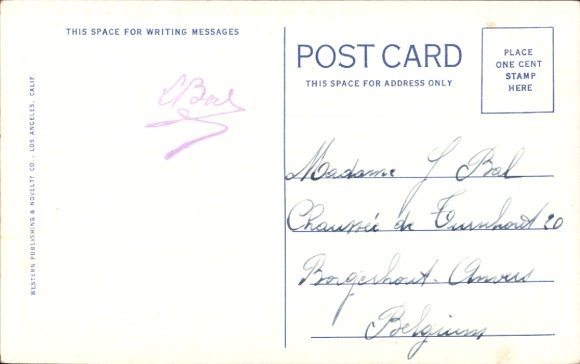 THIS SPACE FOR WRITING MESSAGES
WESTERN PUBLISHING & NOVELTY CO., LOS ANGELES, CALIF.
POST CARD
THIS SPACE FOR ADDRESS ONLY
PLACE
ONE CENT
STAMP
HERE
Madame J Bal
Chaussée de Turnhout 20
Borgerhout-Anvers
Belgium